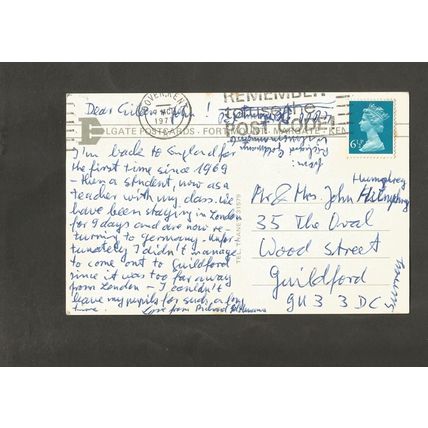 Dear Eileen + John !
DOVER KENT
NOV
197
REMEMBER
to use the
Post
6½P
LGATE POSTCARDS · FORT MARGATE · KEN
I'm back to England for
the first time since 1969
– then a student, now as a
teacher with my class. We
have been staying in London
for 9 days and are now re-
turning to Germany. Unfor-
tunately I didn't manage
to come out to Guildford
since it was too far away
from London – I couldn't
leave my pupils for such a long
time. Love from Richard
TEL: THANET
from:
Richard
Mr & Mrs. John Humphrey
35 The Oval
Wood Street
Guildford
GU3 3DC